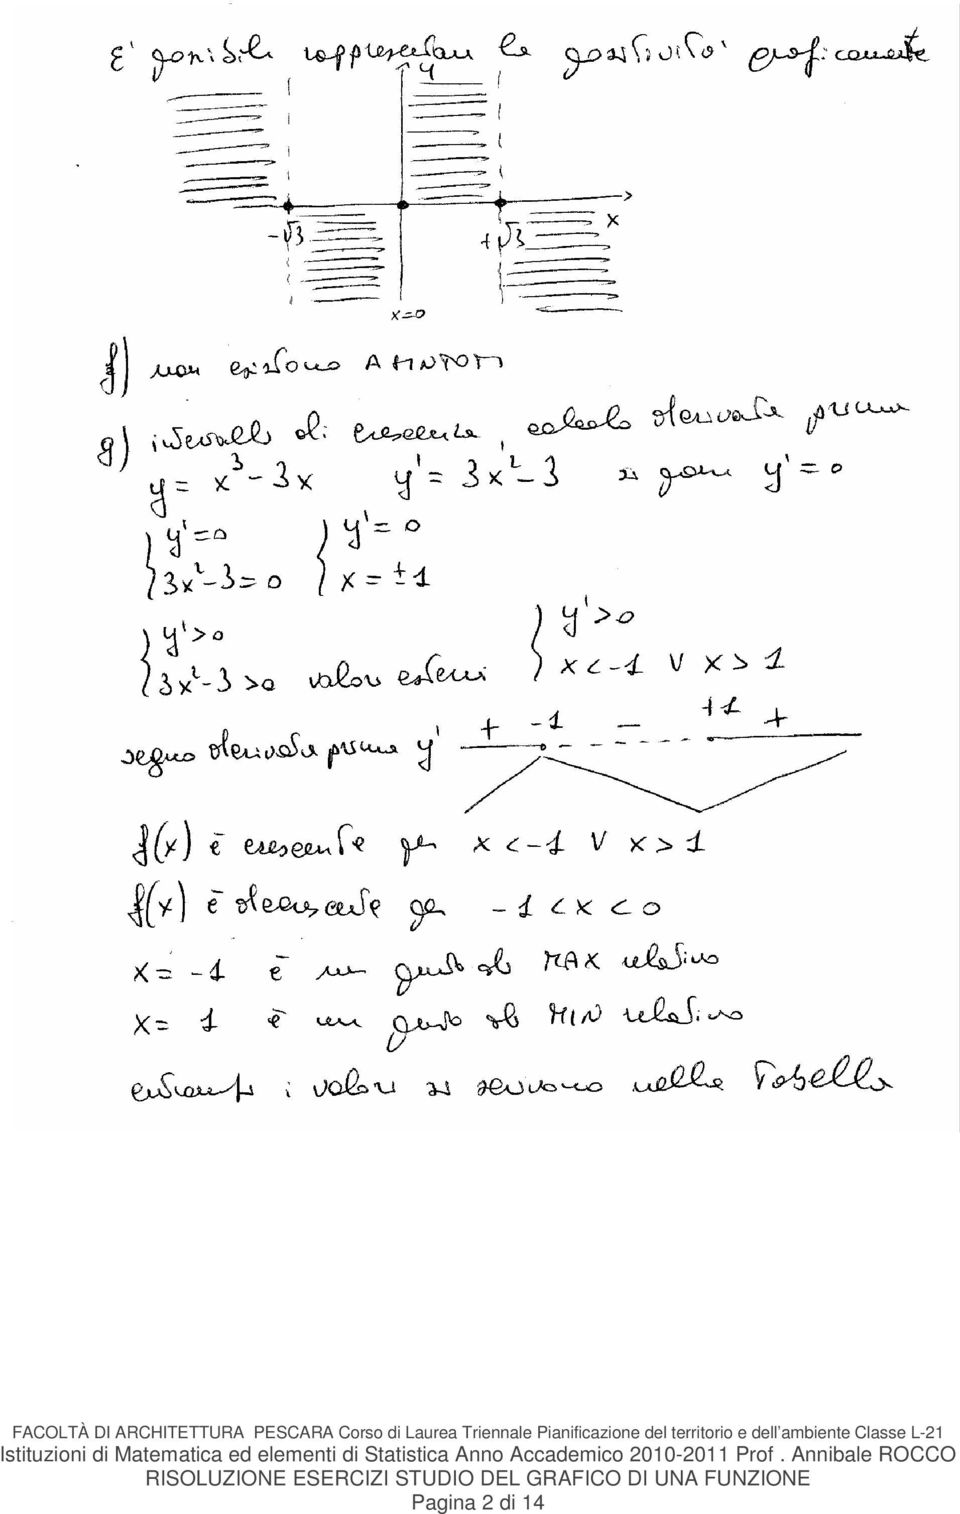 E' possibile rappresentare la positività graficamente
y
-√3 +√3 x
x=0
f) non esistono ASINTOTI
g) intervalli di crescenza, calcolo derivata prima
y = x³-3x y' = 3x²-3 si pone y'=0
{y'=0 {y'=0
{3x²-3=0 {x=±1
{y'>0 {y'>0
{3x²-3>0 valori esterni {x<-1 V x>1
segno derivata prima y' + -1 - +1 +
f(x) è crescente per x<-1 V x>1
f(x) è decrescente per -1<x<0
x=-1 è un punto di MAX relativo
x=1 è un punto di MIN relativo
entrambi i valori si scrivono nella Tabella
FACOLTÀ DI ARCHITETTURA PESCARA Corso di Laurea Triennale Pianificazione del territorio e dell'ambiente Classe L-21
Istituzioni di Matematica ed elementi di Statistica Anno Accademico 2010-2011 Prof . Annibale ROCCO
RISOLUZIONE ESERCIZI STUDIO DEL GRAFICO DI UNA FUNZIONE
Pagina 2 di 14